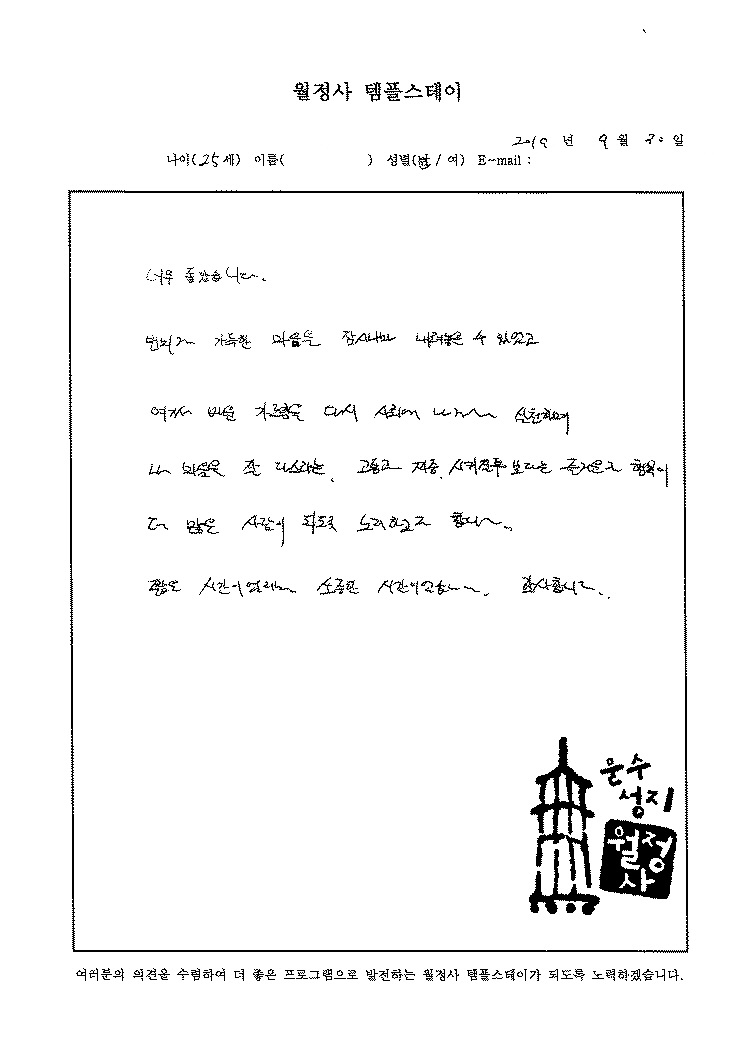 월정사 템플스테이
2019 년 9 월 30 일
나이(25세) 이름( ) 성별(남 / 여) E-mail :
너무 좋았습니다.
번뇌가 가득한 마음을 잠시나마 내려놓을 수 있었고
여기서 배운 가르침을 다시 사회에 나가서 실천하며
내 마음을 잘 다스리는, 고통과 짜증, 보다는 즐거움과 행복이
더 많은 사람이 되도록 노력하고자 합니다.
짧은 시간이었지만 소중한 시간이었습니다. 감사합니다.
문수
성지
월정
사
여러분의 의견을 수렴하여 더 좋은 프로그램으로 발전하는 월정사 템플스테이가 되도록 노력하겠습니다.